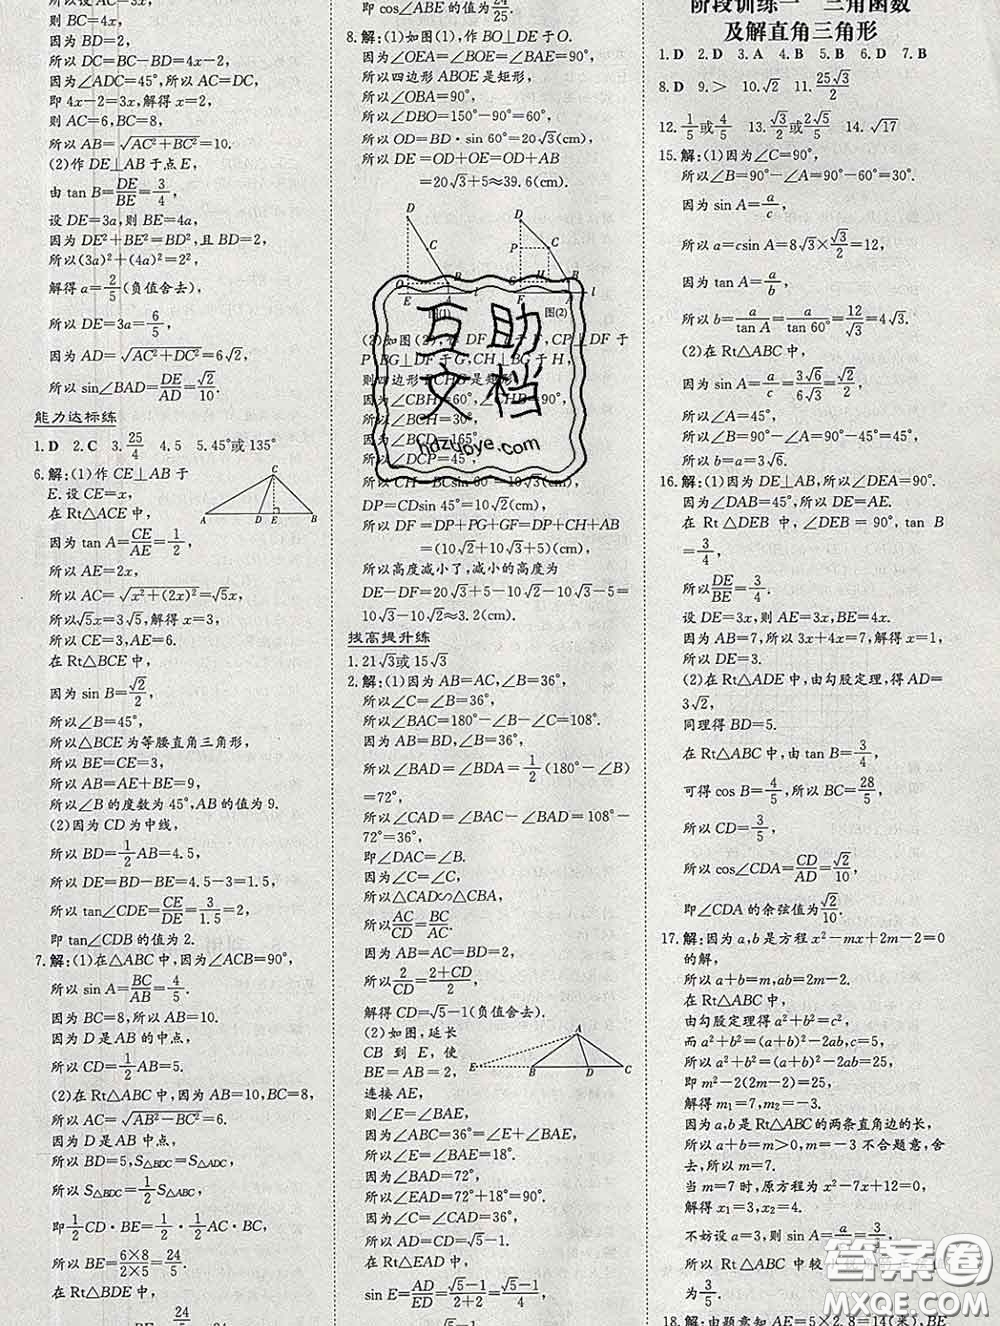 所以设AC=3x,
则BC=4x,
所以DC=BC-BD=4x-2,
因为∠ADC=45°,所以AC=DC,
即4x-2=3x,解得x=2,
则AC=6,BC=8,
所以AB=√(AC²+BC²)=10.
(2)作DE⊥AB于点E,
由tan B=DE/BE=3/4,
设DE=3a,则BE=4a,
因为DE²+BE²=BD²,且BD=2,
所以(3a)²+(4a)²=2²,
解得a=2/5(负值舍去),
所以DE=3a=6/5,
因为AD=√(AC²+DC²)=6√2,
所以sin∠BAD=DE/AD=√2/10.
能力达标练
1.D 2.C 3.25/4 4.5 5.45°或135°
6.解:(1)作CE⊥AB于
E.设CE=x,
在Rt△ACE中,
因为tan A=CE/AE=1/2,
所以AE=2x,
所以AC=√(x²+(2x)²)=√5x,
所以√5x=3√5,解得x=3,
所以CE=3,AE=6.
在Rt△BCE中,
因为sin B=√2/2,
所以∠B=45°,
所以△BCE为等腰直角三角形,
所以BE=CE=3,
所以AB=AE+BE=9.
所以∠B的度数为45°,AB的值为9.
(2)因为CD为中线,
所以BD=1/2AB=4.5,
所以DE=BD-BE=4.5-3=1.5,
所以tan∠CDE=CE/DE=3/1.5=2,
即tan∠CDB的值为2.
7.解:(1)在△ABC中,因为∠ACB=90°,
所以sin A=BC/AB=4/5.
因为BC=8,所以AB=10.
因为D是AB的中点,
所以CD=1/2AB=5.
(2)在Rt△ABC中,因为AB=10,BC=8,
所以AC=√(AB²-BC²)=6.
因为D是AB中点,
所以BD=5,S△BDC=S△ADC,
所以S△BDC=1/2S△ABC,
即1/2CD·BE=1/2·1/2AC·BC,
所以BE=6×8/2×5=24/5.
在Rt△BDE中,
即cos∠ABE的值为24/25.
8.解:(1)如图(1),作BO⊥DE于O.
因为∠OEA=∠BOE=∠BAE=90°,
所以四边形ABOE是矩形,
所以∠OBA=90°,
所以∠DBO=150°-90°=60°,
所以OD=BD·sin 60°=20√3(cm),
所以DE=OD+OE=OD+AB
=20√3+5≈39.6(cm).
D
C
O B
E A l
图(1)
D
P C
G H B
F A l
图(2)
(2)如图(2),作DF⊥l于F,CP⊥DF于
P,BG⊥DF于G,CH⊥BG于H,
则四边形PCHG是矩形,
因为∠CBH=60°,∠CHB=90°,
所以∠BCH=30°.
因为∠BCD=165°,
所以∠DCP=45°.
所以CH=BCsin 60°=10√3(cm),
DP=CDsin 45°=10√2(cm),
所以DF=DP+PG+GF=DP+CH+AB
=(10√2+10√3+5)(cm),
所以高度减小了,减小的高度为
DE-DF=20√3+5-10√2-10√3-5=
10√3-10√2≈3.2(cm).
拔高提升练
1.21√3或15√3
2.解:(1)因为AB=AC,∠B=36°,
所以∠C=∠B=36°,
所以∠BAC=180°-∠B-∠C=108°.
因为AB=BD,∠B=36°,
所以∠BAD=∠BDA=1/2(180°-∠B)
=72°,
所以∠CAD=∠BAC-∠BAD=108°-
72°=36°,
即∠DAC=∠B.
因为∠C=∠C,
所以△CAD∽△CBA,
所以AC/CD=BC/AC.
因为AB=AC=BD=2,
所以2/CD=2+CD/2,
解得CD=√5-1(负值舍去).
(2)如图,延长
CB到E,使
BE=AB=2,
连接AE,
则∠E=∠BAE,
因为∠ABC=36°=∠E+∠BAE,
所以∠E=∠BAE=18°.
因为∠BAD=72°,
所以∠EAD=72°+18°=90°,
因为∠C=∠CAD=36°,
所以AD=CD=√5-1.
在Rt△EAD中,
sin E=AD/ED=√5-1/2+2=√5-1/4.
阶段训练一 三角函数
及解直角三角形
1.D 2.D 3.A 4.B 5.B 6.D 7.B
8.D 9.> 10.√2 11.25√3/2
12.1/5或4/5 13.√3/2或2√5/5 14.√17
15.解:(1)因为∠C=90°,
所以∠B=90°-∠A=90°-60°=30°.
因为sin A=a/c,
所以a=csin A=8√3×√3/2=12,
因为tan A=a/b,
所以b=a/tan A=a/tan 60°=12/√3=4√3.
(2)在Rt△ABC中,
因为sin A=a/c=3√6/6√3=√2/2,
所以∠A=45°,
所以∠B=90°-∠A=90°-45°=45°,
所以b=a=3√6.
16.解:(1)因为DE⊥AB,所以∠DEA=90°.
因为∠DAB=45°,所以DE=AE.
在Rt△DEB中,∠DEB=90°,tan B
=3/4,
所以DE/BE=3/4.
设DE=3x,则AE=3x,BE=4x.
因为AB=7,所以3x+4x=7,解得x=1,
所以DE=3.
(2)在Rt△ADE中,由勾股定理,得AD=
3√2,
同理得BD=5.
在Rt△ABC中,由tan B=3/4,
可得cos B=4/5,所以BC=28/5,
所以CD=3/5,
所以cos∠CDA=CD/AD=√2/10,
即∠CDA的余弦值为√2/10.
17.解:因为a,b是方程x²-mx+2m-2=0
的解,
所以a+b=m,ab=2m-2,
在Rt△ABC中,
由勾股定理得a²+b²=c²,
而a²+b²=(a+b)²-2ab,c=5,
所以a²+b²=(a+b)²-2ab=25,
即m²-2(2m-2)=25,
解得m₁=7,m₂=-3.
因为a,b是Rt△ABC的两条直角边的长,
所以a+b=m>0,m=-3不合题意,舍
去,所以m=7.
当m=7时,原方程为x²-7x+12=0,
解得x₁=3,x₂=4.
不妨设a=3,则sin A=a/c=3/5,
所以Rt△ABC中较
为3/5.
18.解:由题意知AE=5×2.8=14(米),BE
互助
文档
hdzuoye.com
答案圈
MXQE.COM